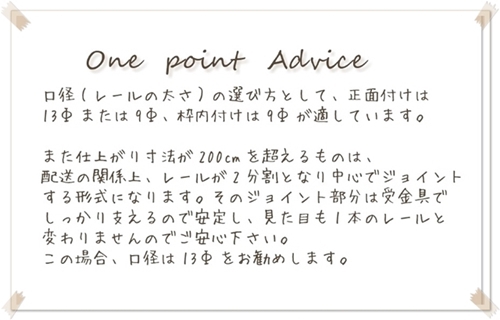 One point Advice
口径(レールの太さ)の選び方として、正面付けは
13Φ または 9Φ、枠内付けは 9Φ が適しています。
また仕上がり寸法が 200cm を超えるものは、
配送の関係上、レールが 2 分割となり中心でジョイント
する形式になります。そのジョイント部分は受金具で
しっかり支えるので安定し、見た目も 1 本のレールと
変わりませんのでご安心下さい。
この場合、口径は 13Φ をお勧めします。